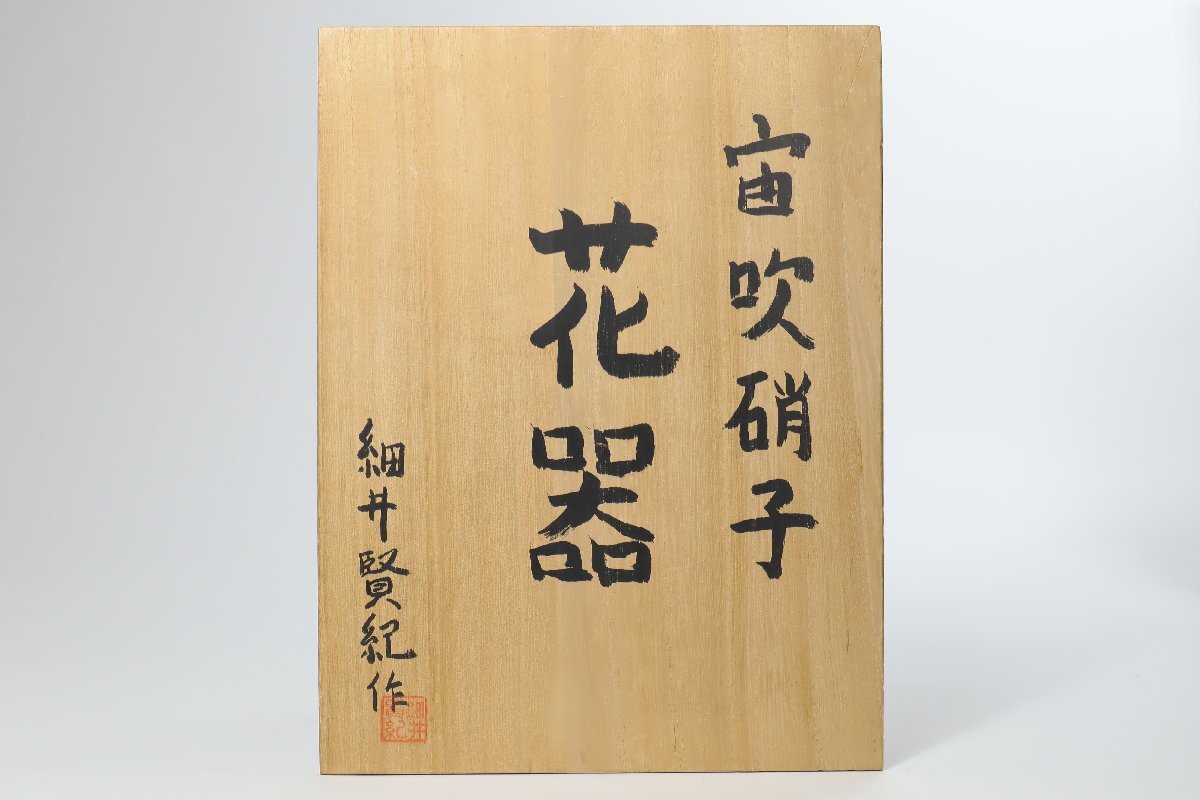 宙吹硝子
花器
細井賢紀作